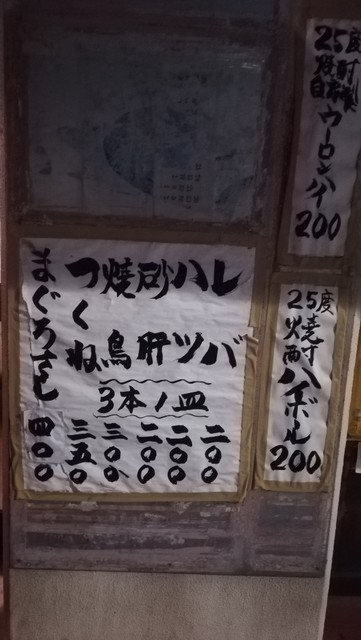 25度
焼酎
自家製
ウーロンハイ
200
25度
焼酎
ハイボール
200
レバ 二〇〇
ハツ 二〇〇
砂肝 二〇〇
焼鳥 三〇〇
つくね 三五〇
3本1皿
まぐろさし 四〇〇